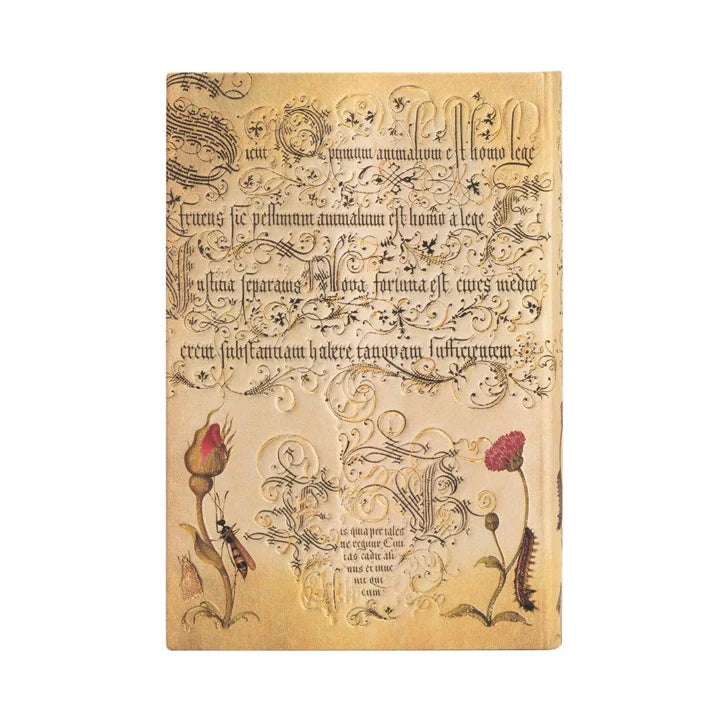 Sicut Optimum animalium est homo lege
fruens sic pessimum animalium est homo a lege Et
Iustitia separatus Nova fortuna est cives medio
crem substantiam habere tanquam sufficientem
is quia per tales
ne reguur Ciui
tas cadit ali
nus et inue
nit qui
cum